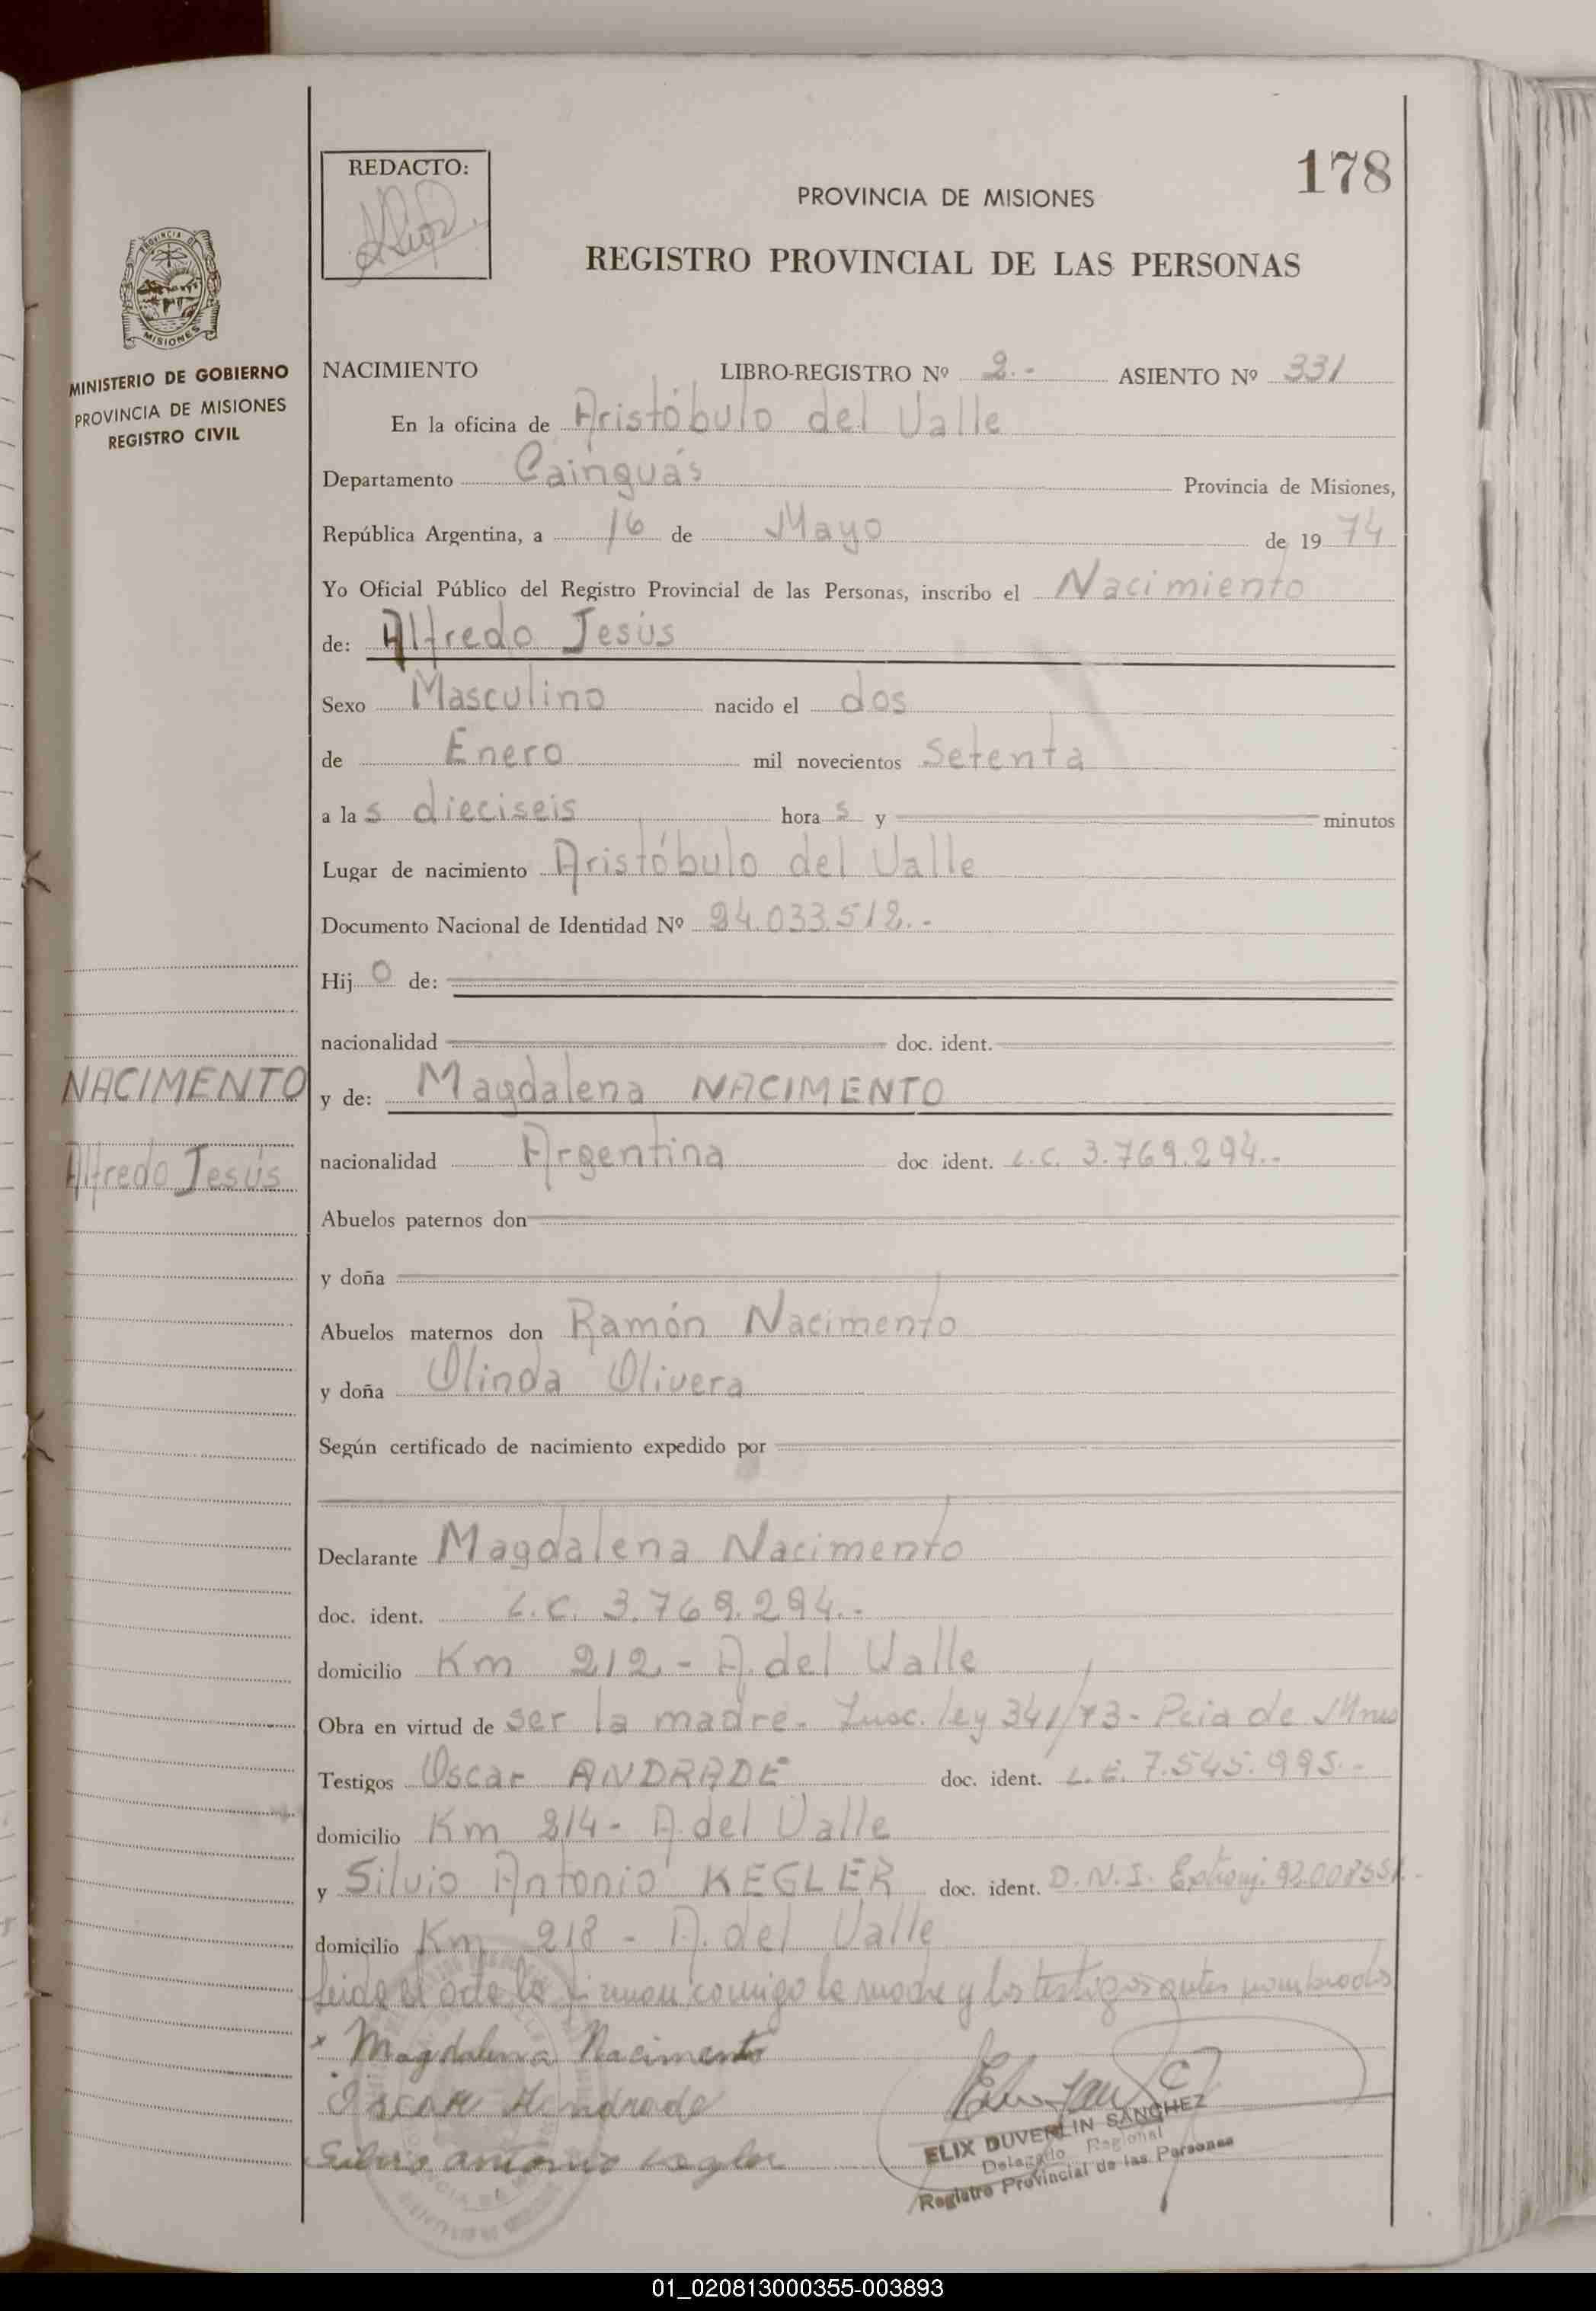 178
REDACTO:
PROVINCIA DE MISIONES
REGISTRO PROVINCIAL DE LAS PERSONAS
PROVINCIA DE
MISIONES
MINISTERIO DE GOBIERNO
PROVINCIA DE MISIONES
REGISTRO CIVIL
NACIMIENTO LIBRO-REGISTRO Nº 2.- ASIENTO Nº 331
En la oficina de Aristóbulo del Valle
Departamento Cainguás Provincia de Misiones,
República Argentina, a 16 de Mayo de 1974
Yo Oficial Público del Registro Provincial de las Personas, inscribo el Nacimiento
de: Alfredo Jesús
Sexo Masculino nacido el dos
de Enero mil novecientos Setenta
a las dieciseis horas y minutos
Lugar de nacimiento Aristóbulo del Valle
Documento Nacional de Identidad Nº 24.033.512.-
Hijo de:
nacionalidad doc. ident.
NACIMENTO
y de: Magdalena NACIMENTO
Alfredo Jesús
nacionalidad Argentina doc ident. L.C. 3.769.294.-
Abuelos paternos don
y doña
Abuelos maternos don Ramón Nacimento
y doña Olinda Olivera
Según certificado de nacimiento expedido por
Declarante Magdalena Nacimento
doc. ident. L.C. 3.769.294.-
domicilio Km 212 - A. del Valle
Obra en virtud de ser la madre. Insc. ley 341/73 - Pcia de Mnes
Testigos Oscar ANDRADE doc. ident. L.E. 7.545.995.-
domicilio Km 214 - A. del Valle
y Silvio Antonio KEGLER doc. ident. D.N.I. Extranj.
domicilio Km 218 - A. del Valle
Leida el acta la firman comigo la madre y los testigos antes nombrados
x Magdalena Nacimento
Oscar Andrade
Silvio antonio Kegler
ELIX DUVERLIN SANCHEZ
Delegado Regional
Registro Provincial de las Personas
01_020813000355-003893